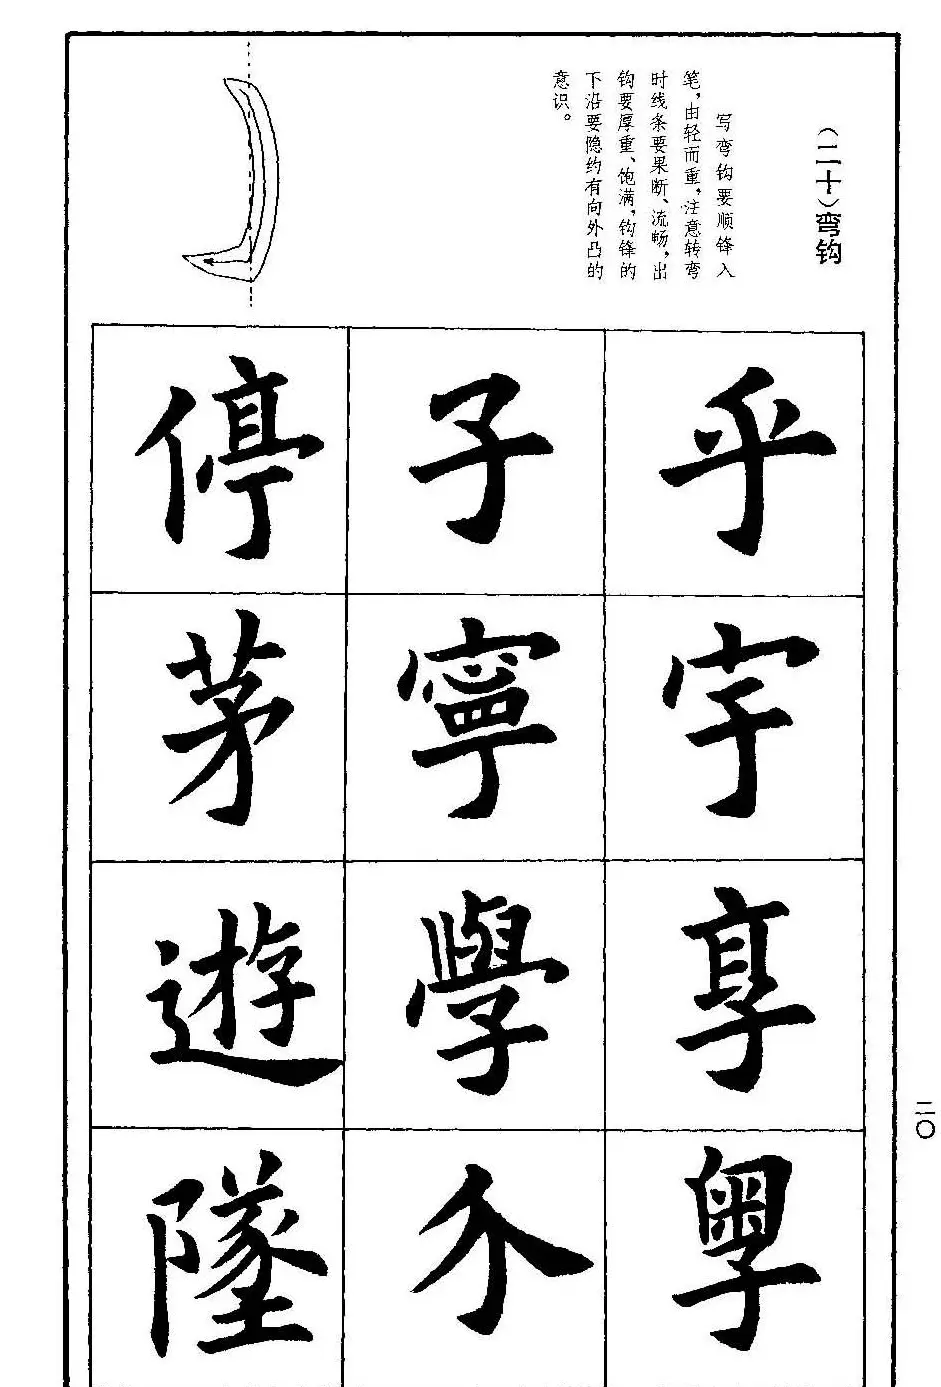 （二十）弯钩
写弯钩要顺锋入
笔，由轻而重，注意转弯
时线条要果断、流畅，出
钩要厚重、饱满，钩锋的
下沿要隐约有向外凸的
意识。
乎
宇
享
粤
子
寧
學
尒
停
茅
遊
墜
二〇